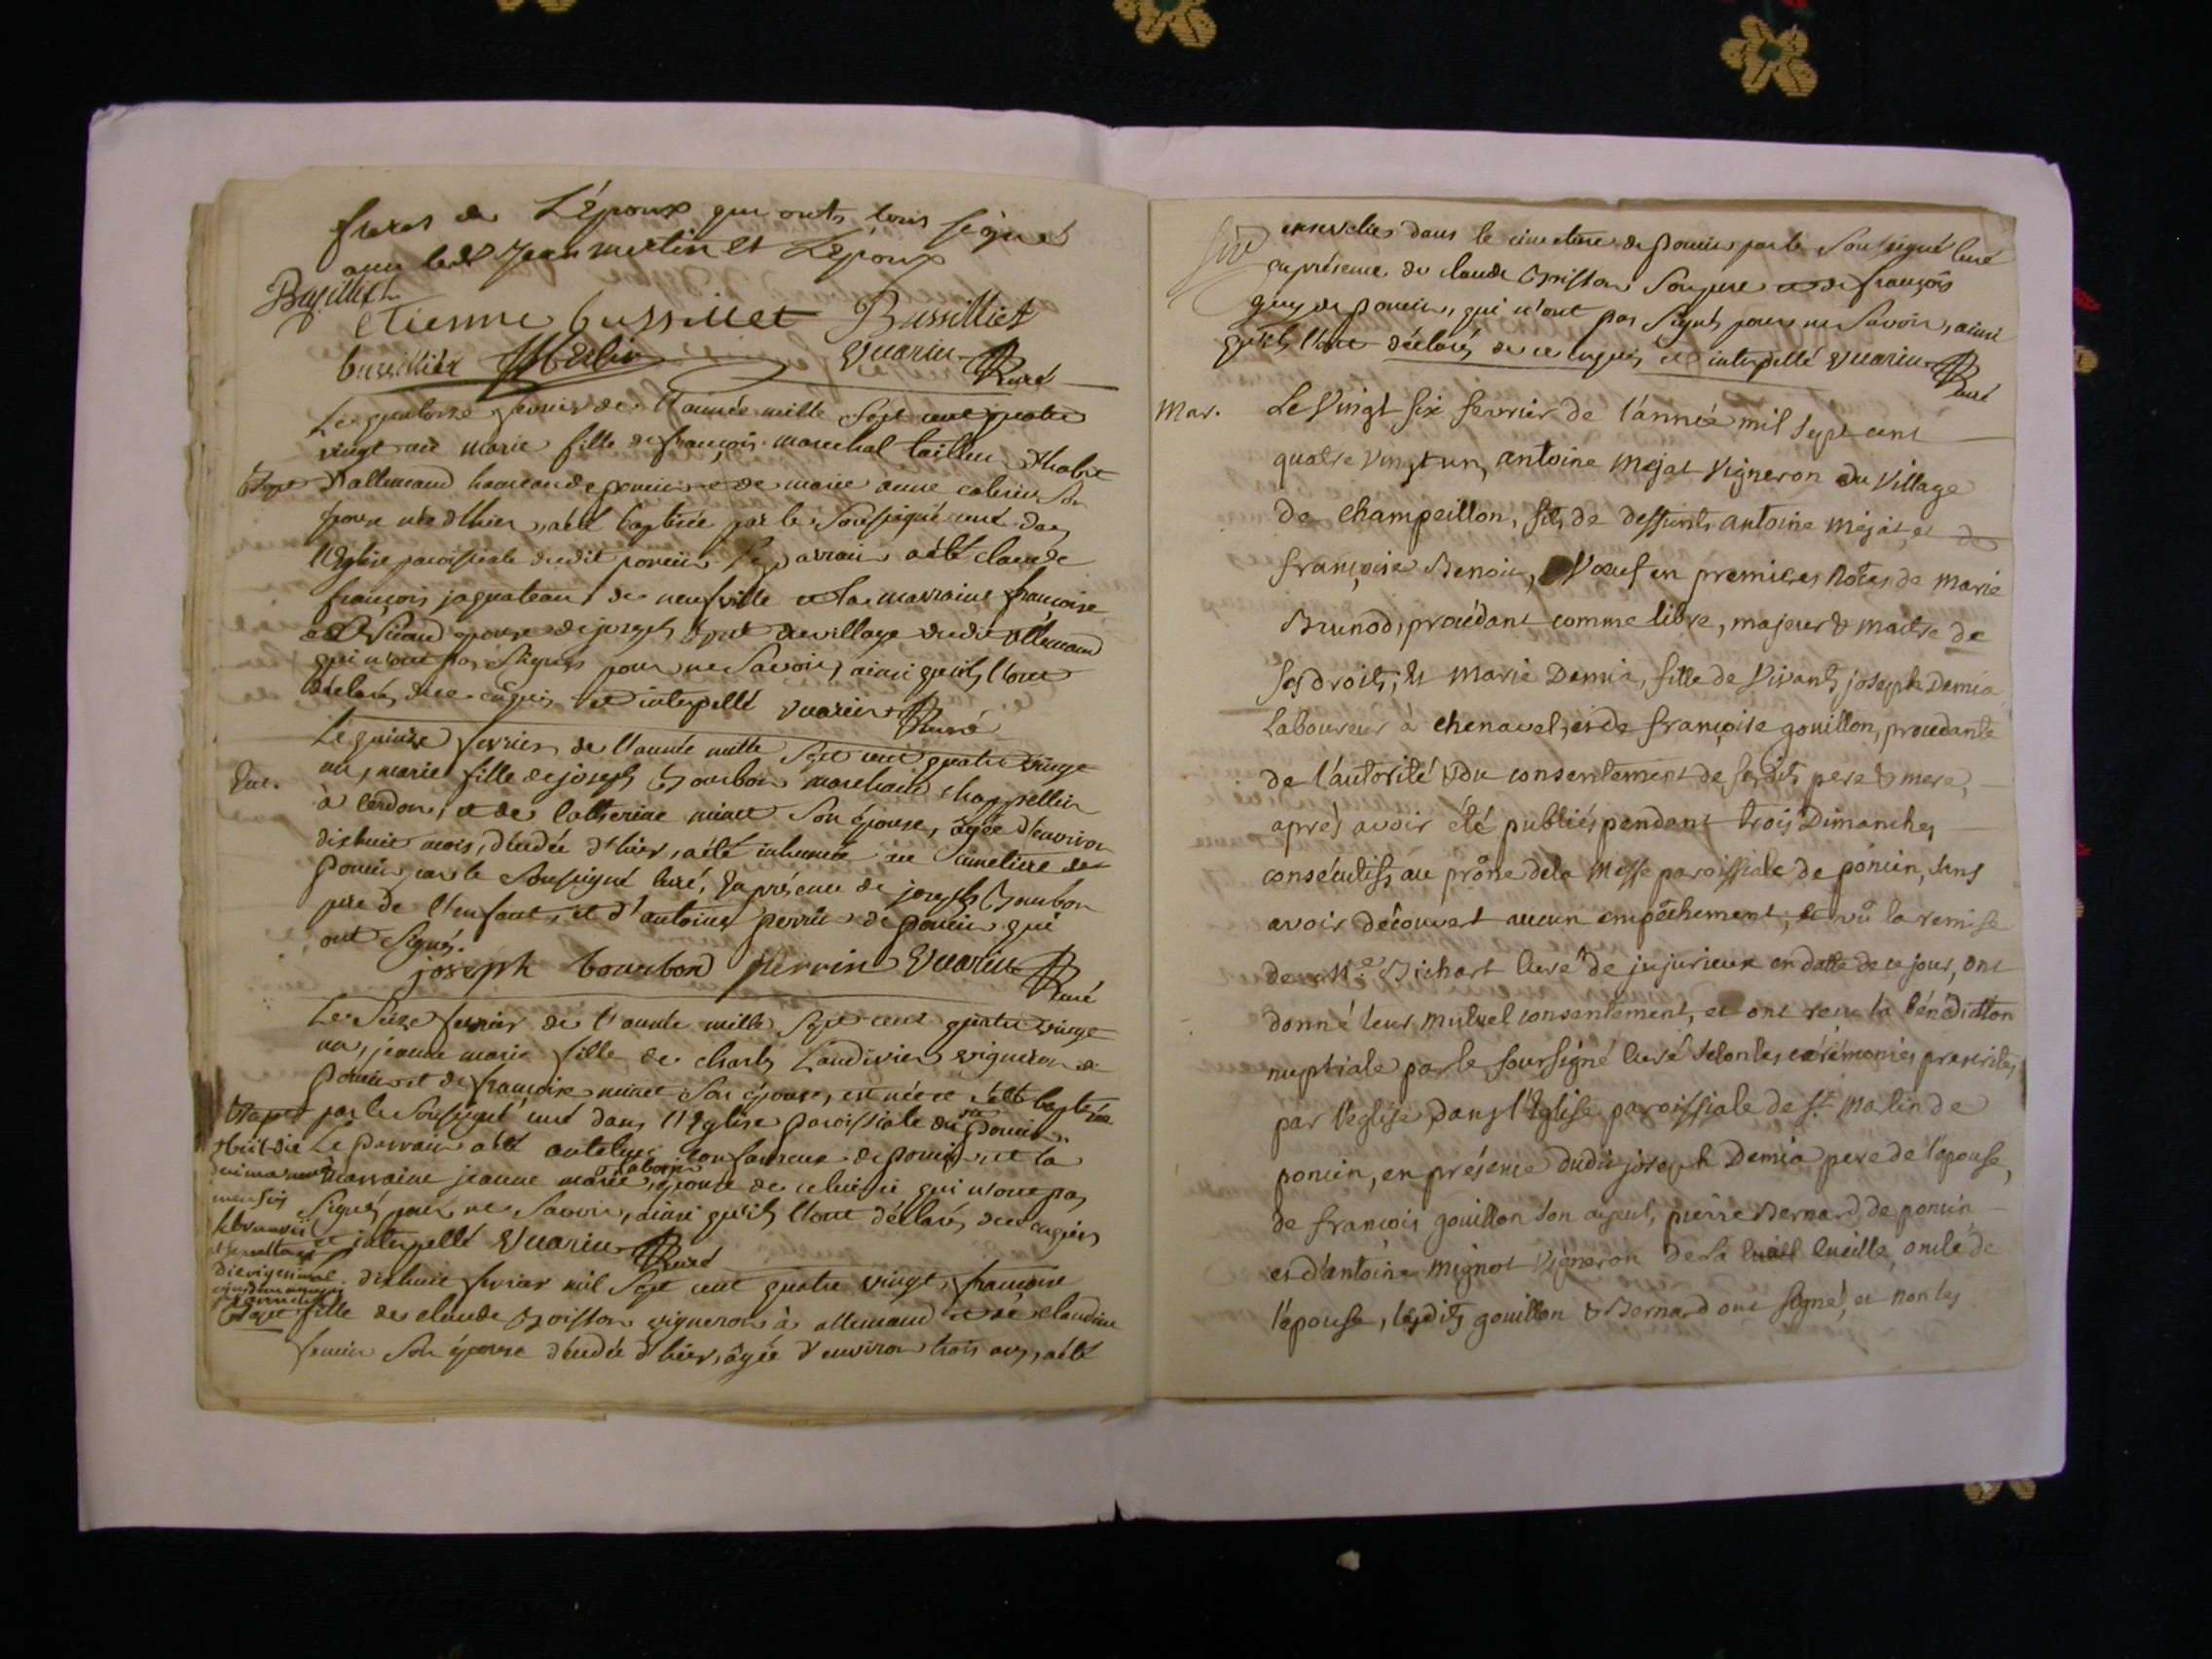 freres de L'époux qui ont tous signés
avec led. Jean merlin et L'époux
Bussillet
etienne bussillet Bussilliet
bussillet JMerlin Vuarin Curé
Le quatorze fevrier de l'année mille sept cent quatre
vingt un marie fille de françois marechal tailleur d'habit
Bapt d'allemand hameau de poncin et de marie anne son
épouse née d'hier, a été baptisée par le soussigné curé dans
l'Eglise paroissiale dudit poncin. Le parrain a été claude
françois jaquateau de neufville et la marraine françoise
épouse de joseph du village dudit allemand
qui n'ont pas signés pour ne savoir, ainsi qu'ils l'ont
déclaré, de ce enquis et interpellé Vuarin Curé
Le quinze fevrier de l'année mille sept cent quatre vingt
un, marie fille de joseph Bourbon marchand chappellier
à cerdon, et de catherine minet son épouse, agée d'environ
dixhuit mois, décédée d'hier, a été inhumée au cimetiere de
poncin, par le soussigné curé, En présence de joseph Bourbon
pere de l'enfant, et d'antoine perrin de poncin qui
ont signés.
joseph bourbond perrin Vuarin Curé
Le seize fevrier de l'année mille sept cent quatre vingt
un, jeanne marie fille de charles Landivier vigneron de
poncin et de françoise minet son épouse, est née et a été baptisée
Bapt par le soussigné curé dans l'Eglise paroissiale du poncin.
Le parrain a été de poncin, et la
marraine jeanne marie épouse de celui-ci qui n'ont pas
signés pour ne savoir, ainsi qu'ils l'ont déclarés, de ce enquis
et interpellé Vuarin Curé
dixhuit fevrier mil sept cent quatre vingt, françoise
fille de claude vigneron à allemand et de claudine
son épouse décédée d'hier, âgée d'environ trois ans, a été
ensevelie dans le cimetiere de poncin par le soussigné curé
en présence de claude son pere et de françois
guy de poncin, qui n'ont pas signés pour ne savoir, ainsi
qu'ils l'ont déclarés de ce enquis, et interpellé Vuarin Curé
Mar. Le Vingt six fevrier de l'année mil sept cent
quatre vingt un, antoine mejat vigneron du village
de champeillon, fils de deffunts antoine mejat, et de
françoise Benoit, Vœuf en premieres noces de marie
Brunod, procédant comme libre, majeur & maitre de
ses droits, et marie Demia, fille de vivants joseph Demia
Laboureur à chenavel, et de françoise gouillon, procedante
de l'autorité & du consentement de sesdits pere & mere,
après avoir été publiés pendant trois Dimanches
consécutifs, au prône de la Messe paroissiale de poncin, sans
avoir découvert aucun empêchement, et vû la remise
de Mre. Bichart curé de jujurieux en datte de ce jour, ont
donné leur mutuel consentement, et ont reçu la bénédiction
nuptiale par le soussigné curé selon les cérémonies prescrites
par l'eglise, dans l'Eglise paroissiale de st. Matin de
poncin, en présence dudit joseph Demia pere de l'epouse,
de françois gouillon son ayeul, pierre Bernard, de poncin
et d'antoine mignot vigneron de la cueille, oncle de
l'épouse, lesdits gouillon & Bernard ont signé, et non les